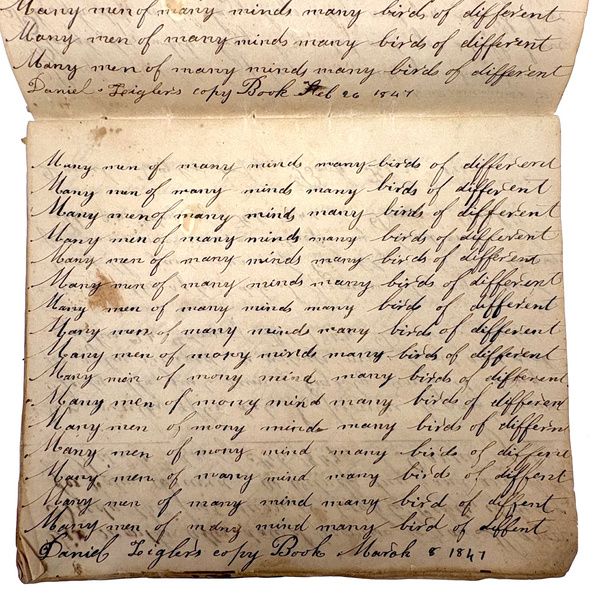 Many men of many minds many birds of different
Many men of many minds many birds of different
Many men of many minds many birds of different
Daniel Zeiglers copy Book Feb 26 1847
Many men of many minds many birds of different
Many men of many minds many birds of different
Many men of many minds many birds of different
Many men of many minds many birds of different
Many men of many minds many birds of different
Many men of many minds many birds of different
Many men of many minds many birds of different
Many men of many minds many birds of different
Many men of mony minds many birds of different
Many men of mony mind many birds of different
Many men of mony mind many birds of differen
Many men of mony minds many birds of differn
Many men of mony mind many birds of differne
Many men of many mind many bird of diffent
Many men of many mind many bird of diffent
Many men of many mind many bird of diffent
Daniel Zeiglers copy Book March 8 1847